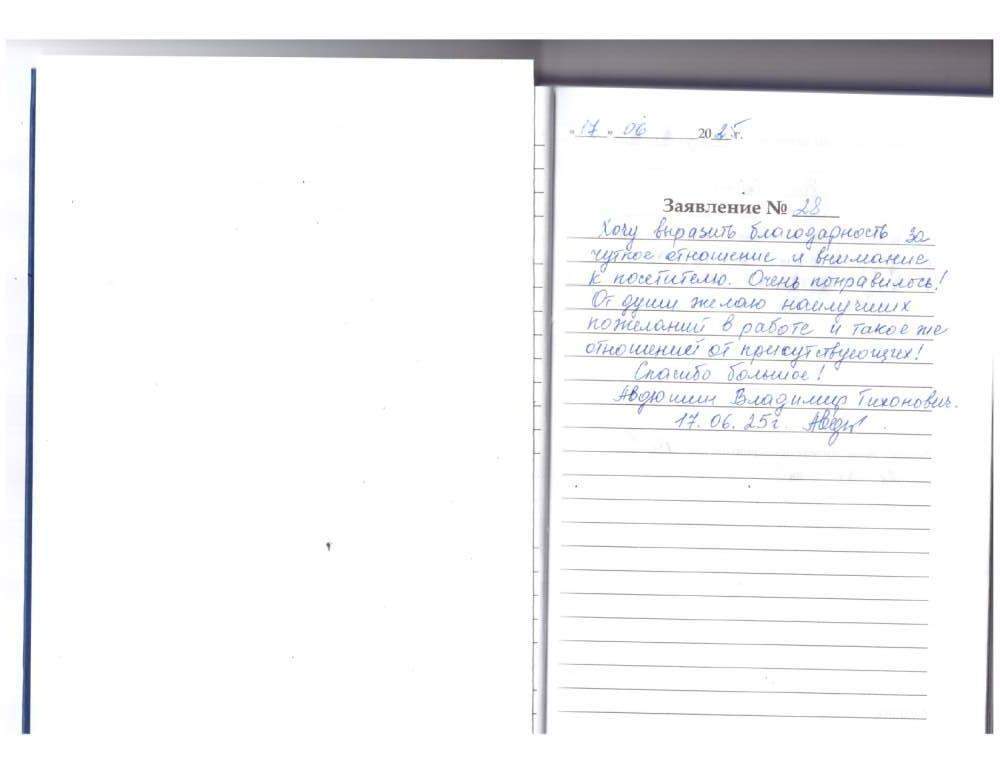 « 17 » 06 2025 г.
Заявление № 28
Хочу выразить благодарность за
чуткое отношение и внимание
к посетителю. Очень понравилось!
От души желаю наилучших
пожеланий в работе и такое же
отношений от присутствующих!
Спасибо большое!
Авдюшин Владимир Тихонович.
17.06.25г.